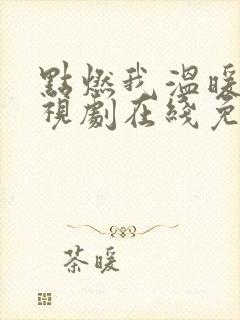 點燃我溫暖
視劇在綫免
茶暖